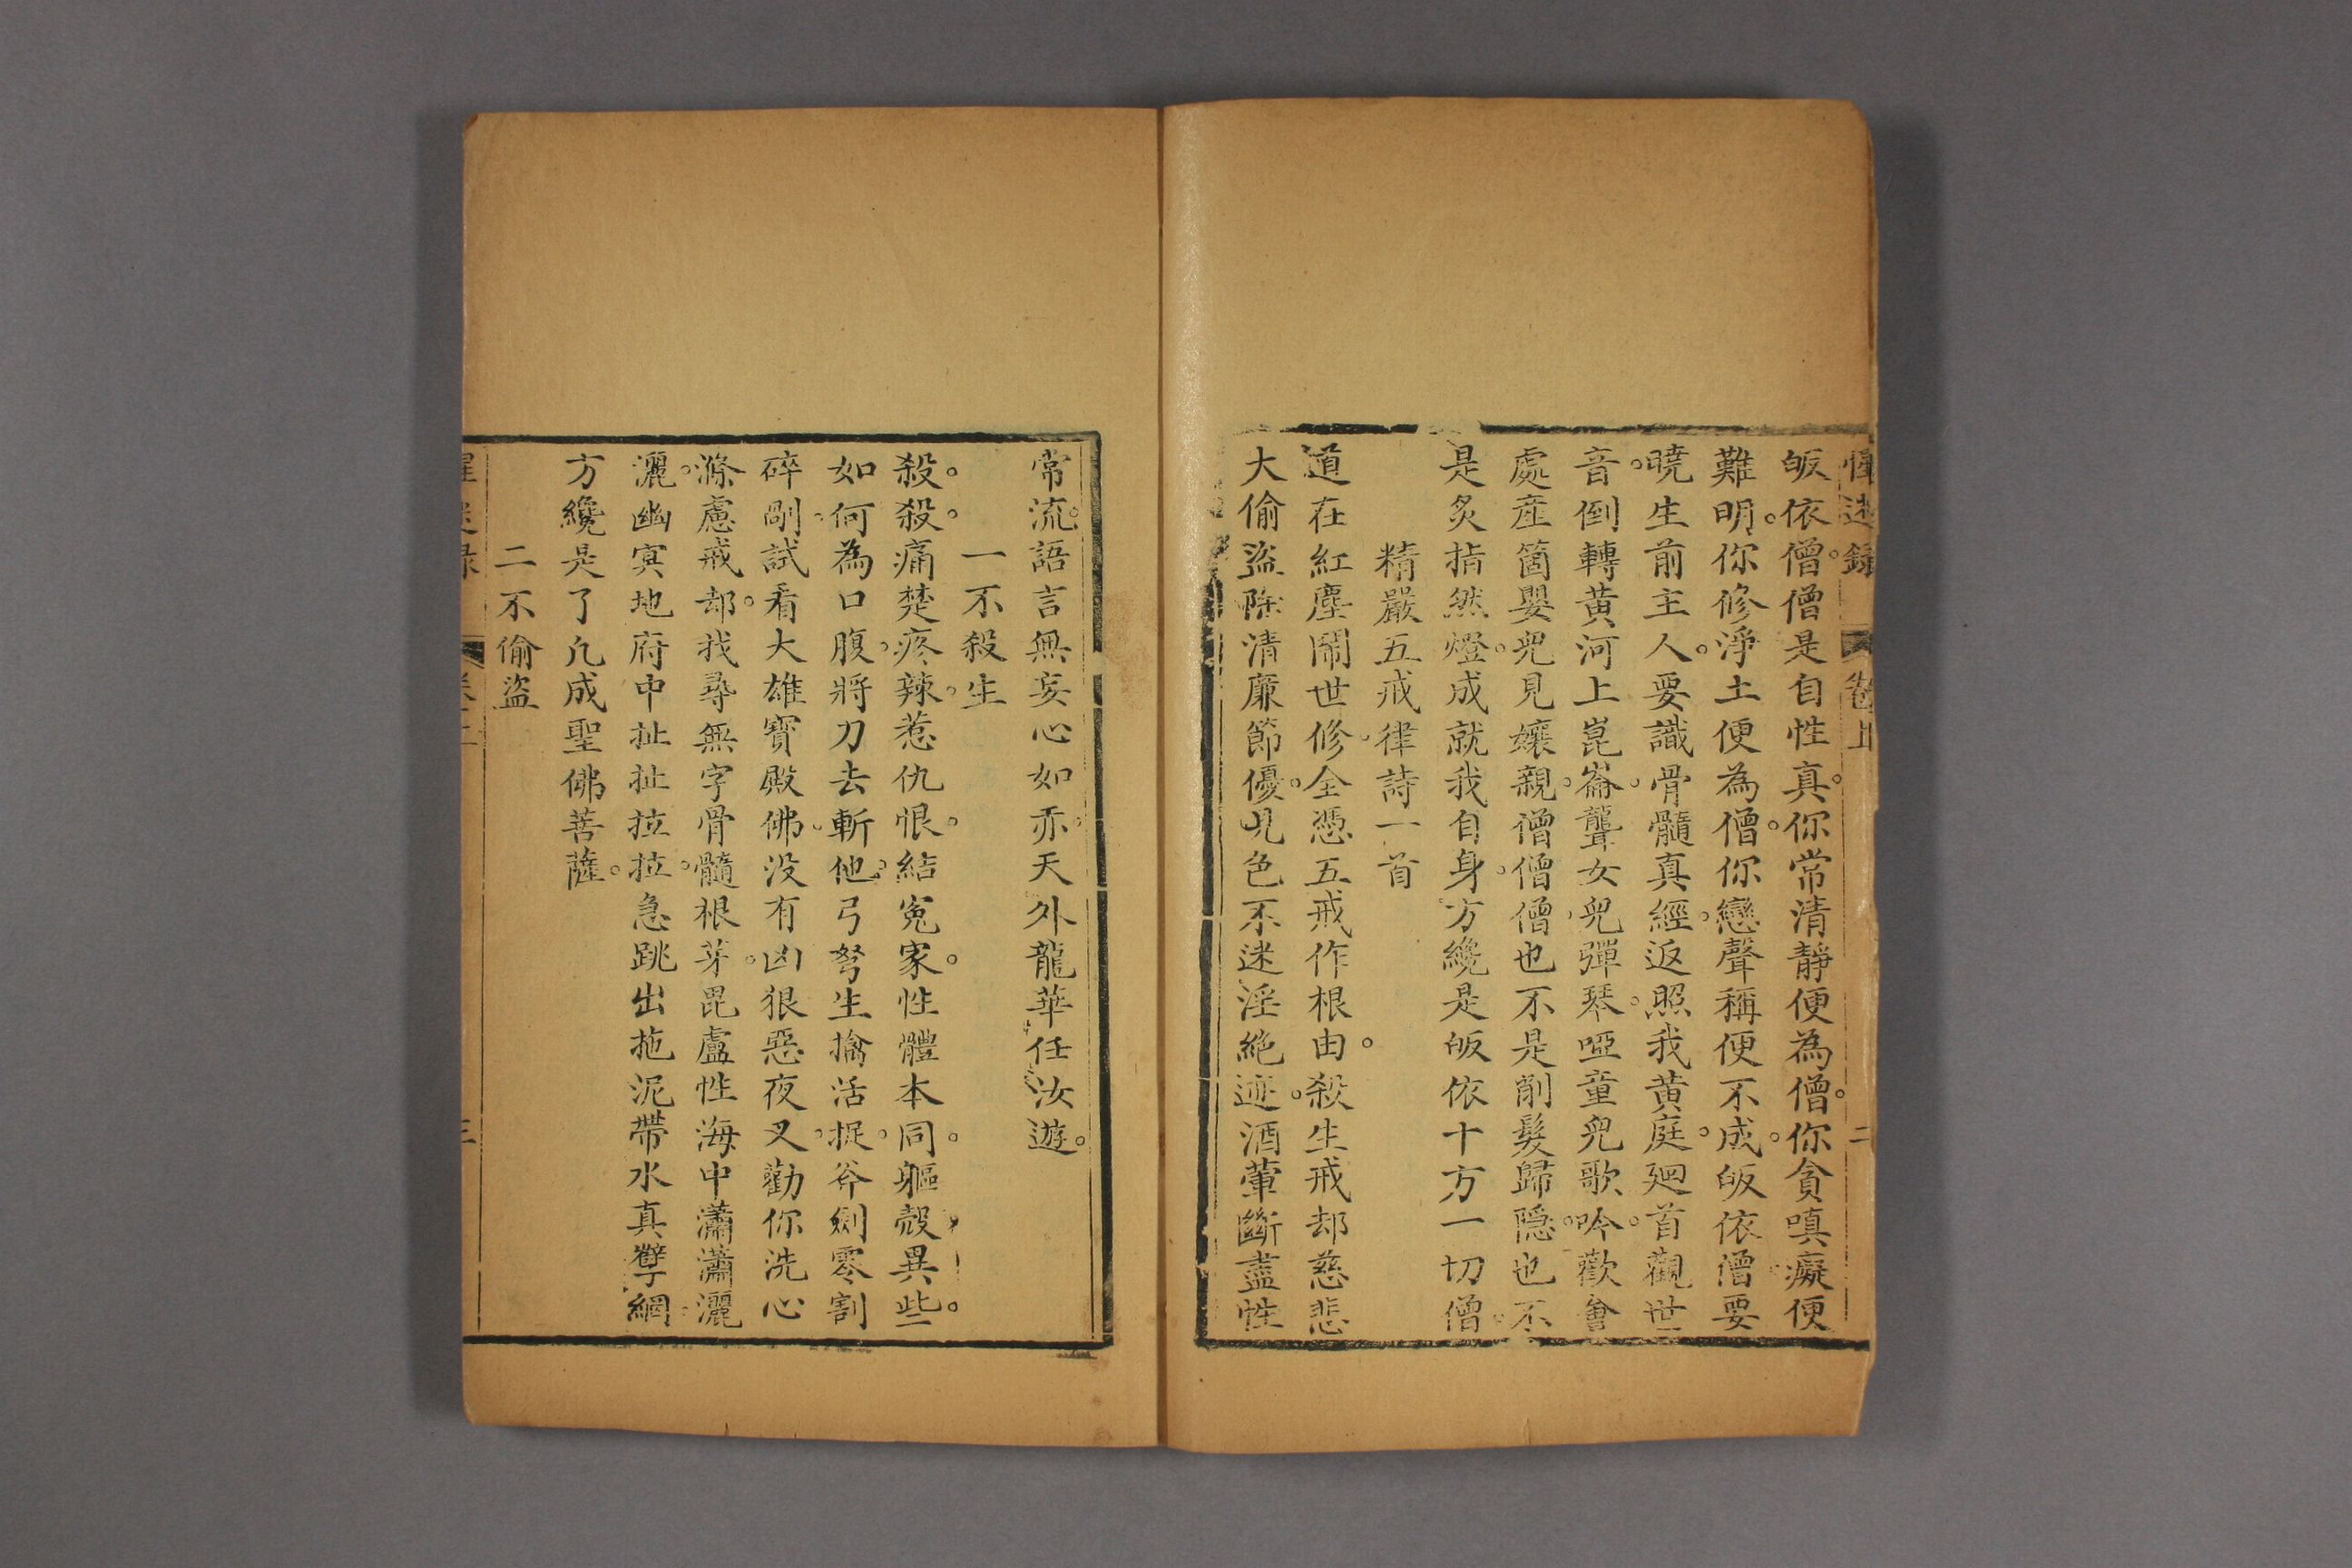 惺迷錄 卷上 二
皈依僧。僧是自性真。你常清靜便為僧。你貪嗔癡便
難明。你修淨土便為僧。你戀聲稱便不成。皈依僧要
曉生前主人。要識骨髓真經。返照我黃庭。廻首觀世
音。倒轉黃河上崑崙。聾女兒彈琴。啞童兒歌吟。歡會
處產箇嬰兒見孃親。僧僧僧也不是削髮歸隱。也不
是炙指然燈。成就我自身。方纔是皈依十方一切僧。
精嚴五戒律詩一首
道在紅塵鬧世修。全憑五戒作根由。殺生戒却慈悲
大。偷盜除清廉節優。見色不迷淫絕迹。酒葷斷盡性
常流。語言無妄心如赤。天外龍華任汝遊。
一不殺生
殺。殺。痛楚疼辣。惹仇恨。結冤家。性體本同。軀殼異些。
如何為口腹。將刀去斬他。弓弩生擒活捉。斧劍零割
碎剮。試看大雄寶殿佛。没有凶狠惡夜叉。勸你洗心
滌慮戒却。找尋無字骨髓根芽。毘盧性海中瀟瀟灑
灑。幽冥地府中扯扯拉拉。急跳出拖泥帶水真孽網。
方纔是了凡成聖佛菩薩。
二不偷盜
惺迷录 卷上 三